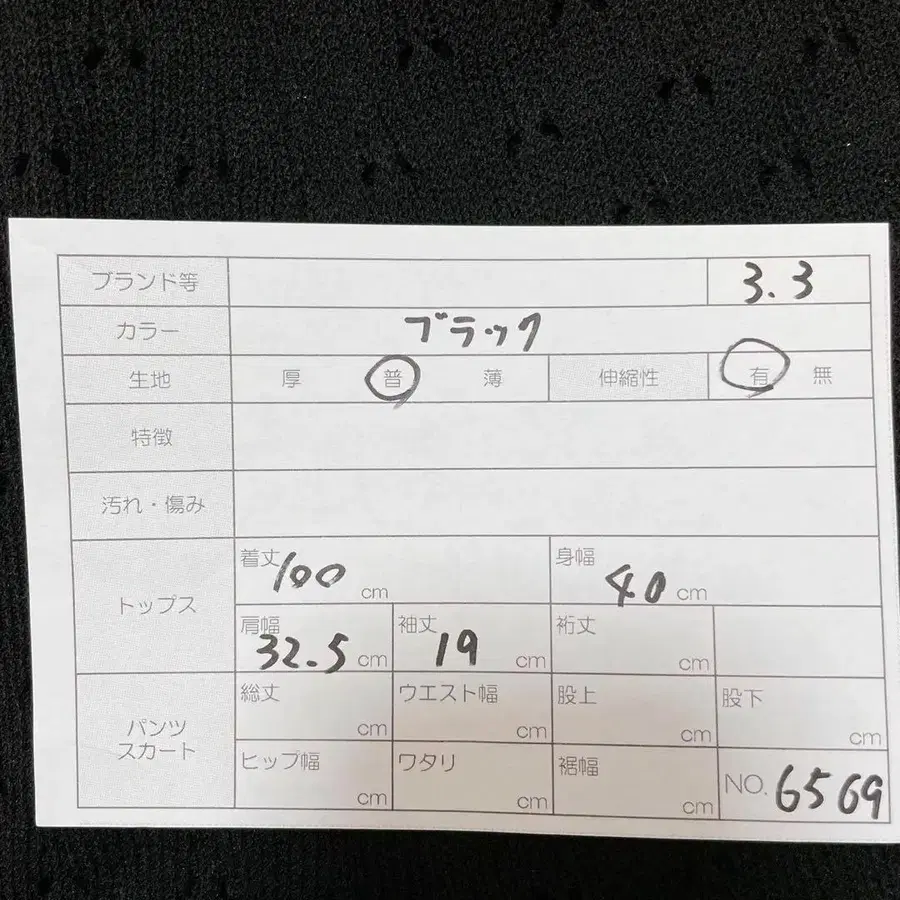 ブランド等 3.3
カラー ブラック
生地 厚 普 薄 伸縮性 有 無
特徴
汚れ・傷み
トップス
着丈 100 cm 身幅 40 cm
肩幅 32.5 cm 袖丈 19 cm 裄丈 cm
パンツ
スカート
総丈 cm ウエスト幅 cm 股上 cm 股下 cm
ヒップ幅 cm ワタリ cm 裾幅 cm NO. 6569